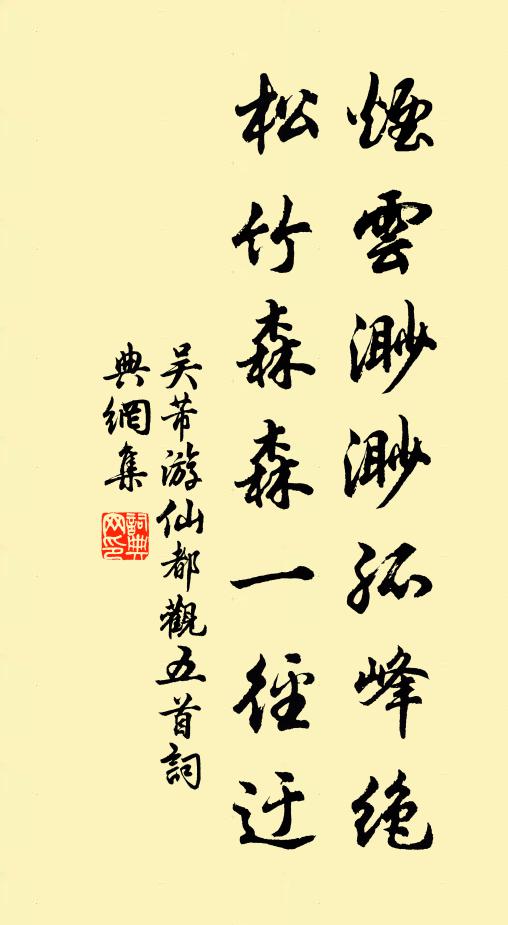 煙雲渺渺孤峰絶
松竹森森一徑迂
吴芾游仙都觀五首詞
典網集
詞典網印